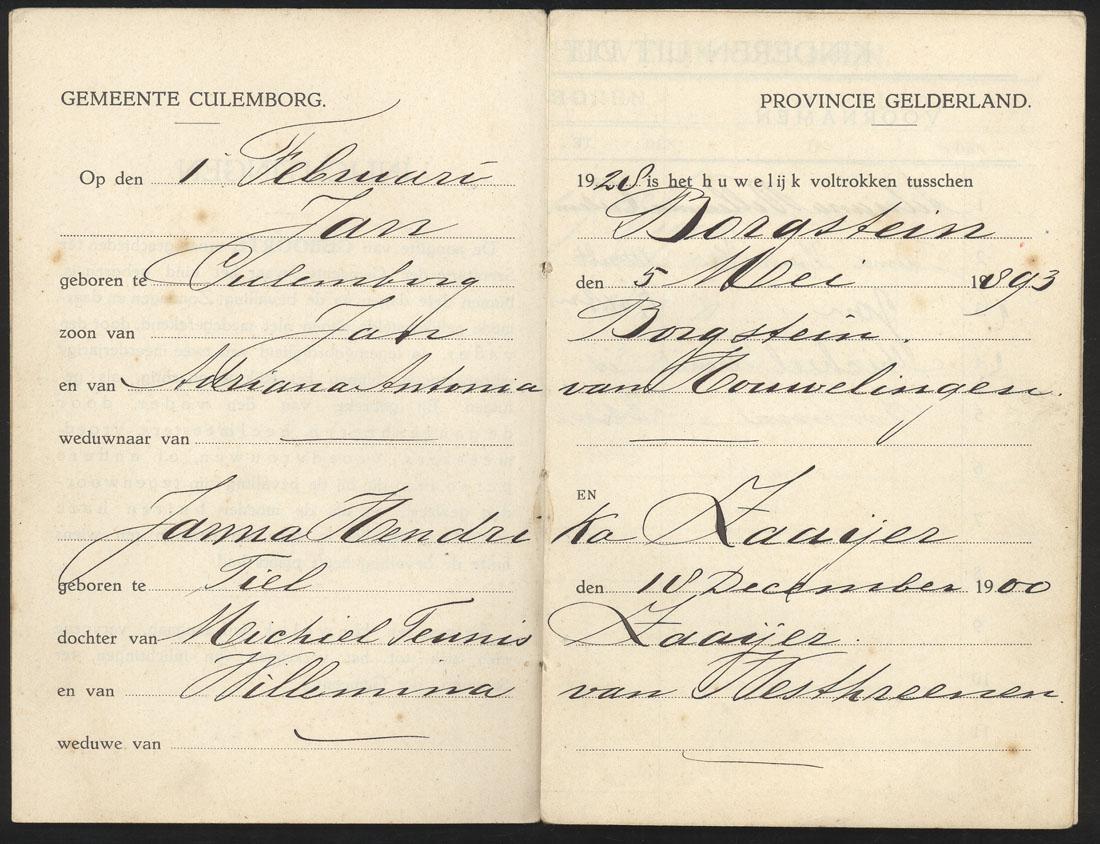 GEMEENTE CULEMBORG. PROVINCIE GELDERLAND.
Op den 1 Februari 1928 is het huwelijk voltrokken tusschen
Jan Borgstein
geboren te Culemborg den 5 Mei 1893
zoon van Jan Borgstein.
en van Adriana Antonia van Houwelingen.
weduwnaar van
EN
Janna Hendrika Zaaijer
geboren te Tiel den 18 December 1900
dochter van Michiel Teunis Zaaijer.
en van Willemina van Westhreenen.
weduwe van